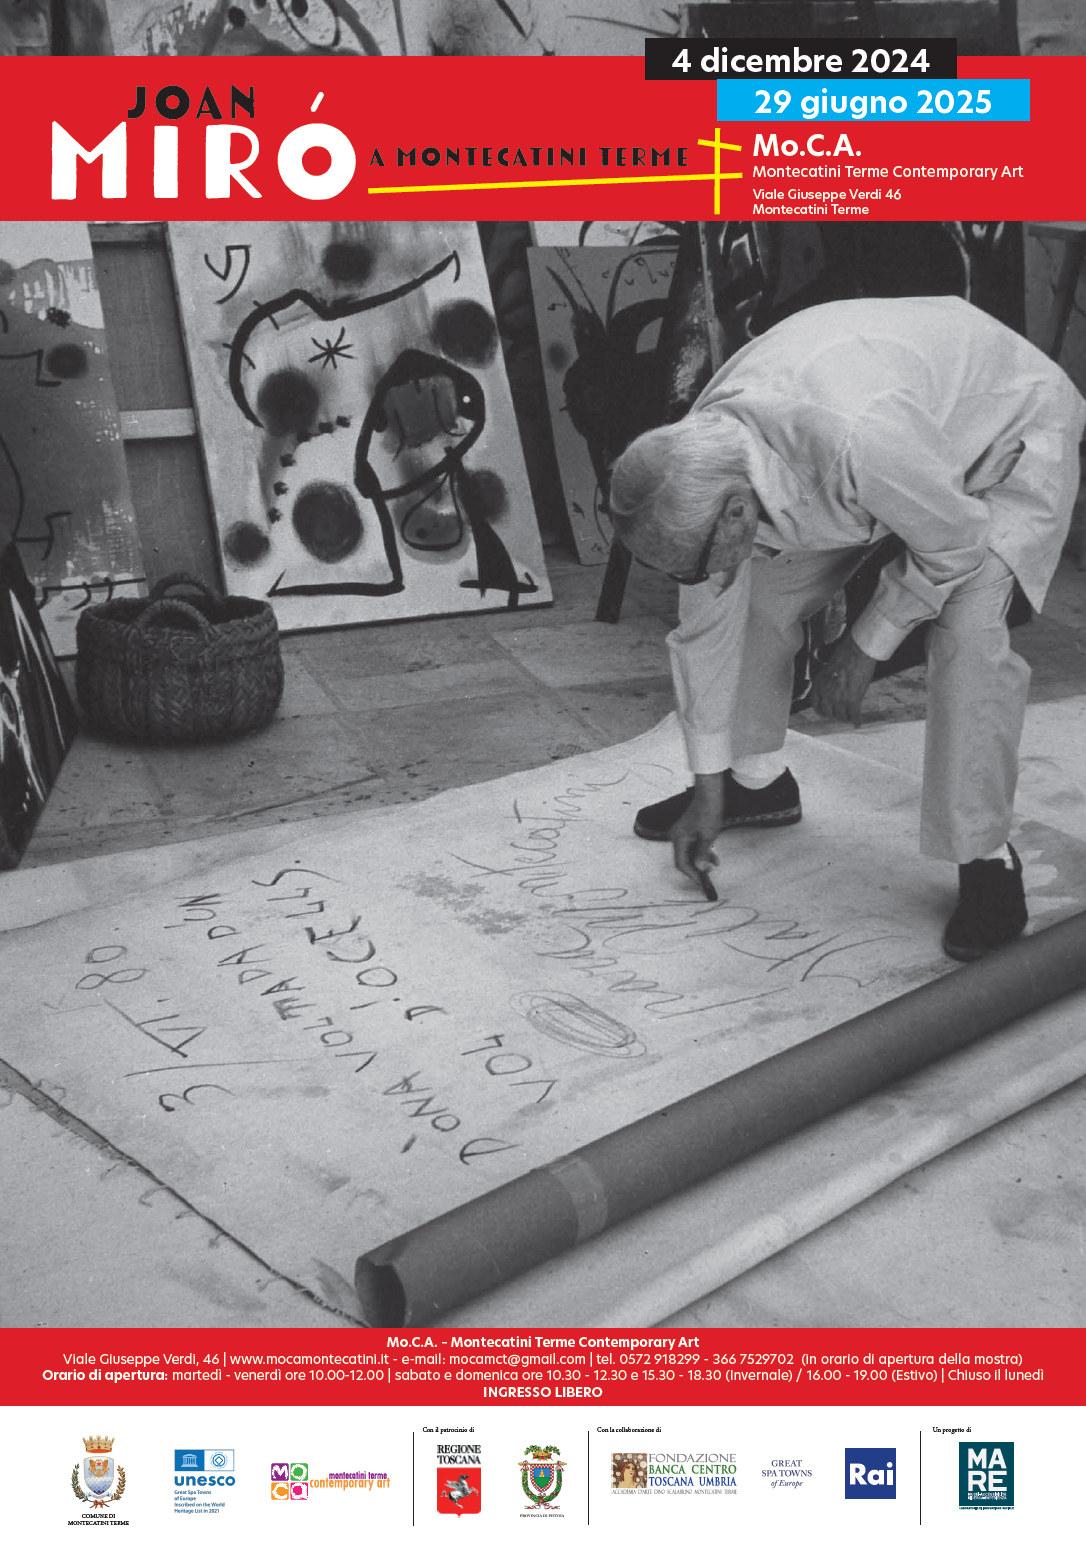 4 dicembre 2024
29 giugno 2025
JOAN
MIRÓ
A MONTECATINI TERME
Mo.C.A.
Montecatini Terme Contemporary Art
Viale Giuseppe Verdi 46
Montecatini Terme
3/VI. 80
DONA VOLTADA D'UN
VOL D'OCELLS.
Para
Montecatini
Italia
Mo.C.A. – Montecatini Terme Contemporary Art
Viale Giuseppe Verdi, 46 | www.mocamontecatini.it - e-mail: mocamct@gmail.com | tel. 0572 918299 - 366 7529702 (in orario di apertura della mostra)
Orario di apertura: martedì - venerdì ore 10.00-12.00 | sabato e domenica ore 10.30 - 12.30 e 15.30 - 18.30 (Invernale) / 16.00 - 19.00 (Estivo) | Chiuso il lunedì
INGRESSO LIBERO
COMUNE DI
MONTECATINI TERME
unesco
Great Spa Towns
of Europe
Inscribed on the World
Heritage List in 2021
MO
CA
montecatini terme
contemporary art
Con il patrocinio di
REGIONE
TOSCANA
PROVINCIA DI PISTOIA
Con la collaborazione di
FONDAZIONE
BANCA CENTRO
TOSCANA UMBRIA
ACCADEMIA D'ARTE DINO SCALABRINO MONTECATINI TERME
GREAT
SPA TOWNS
of Europe
Rai
Un progetto di
MA
RE